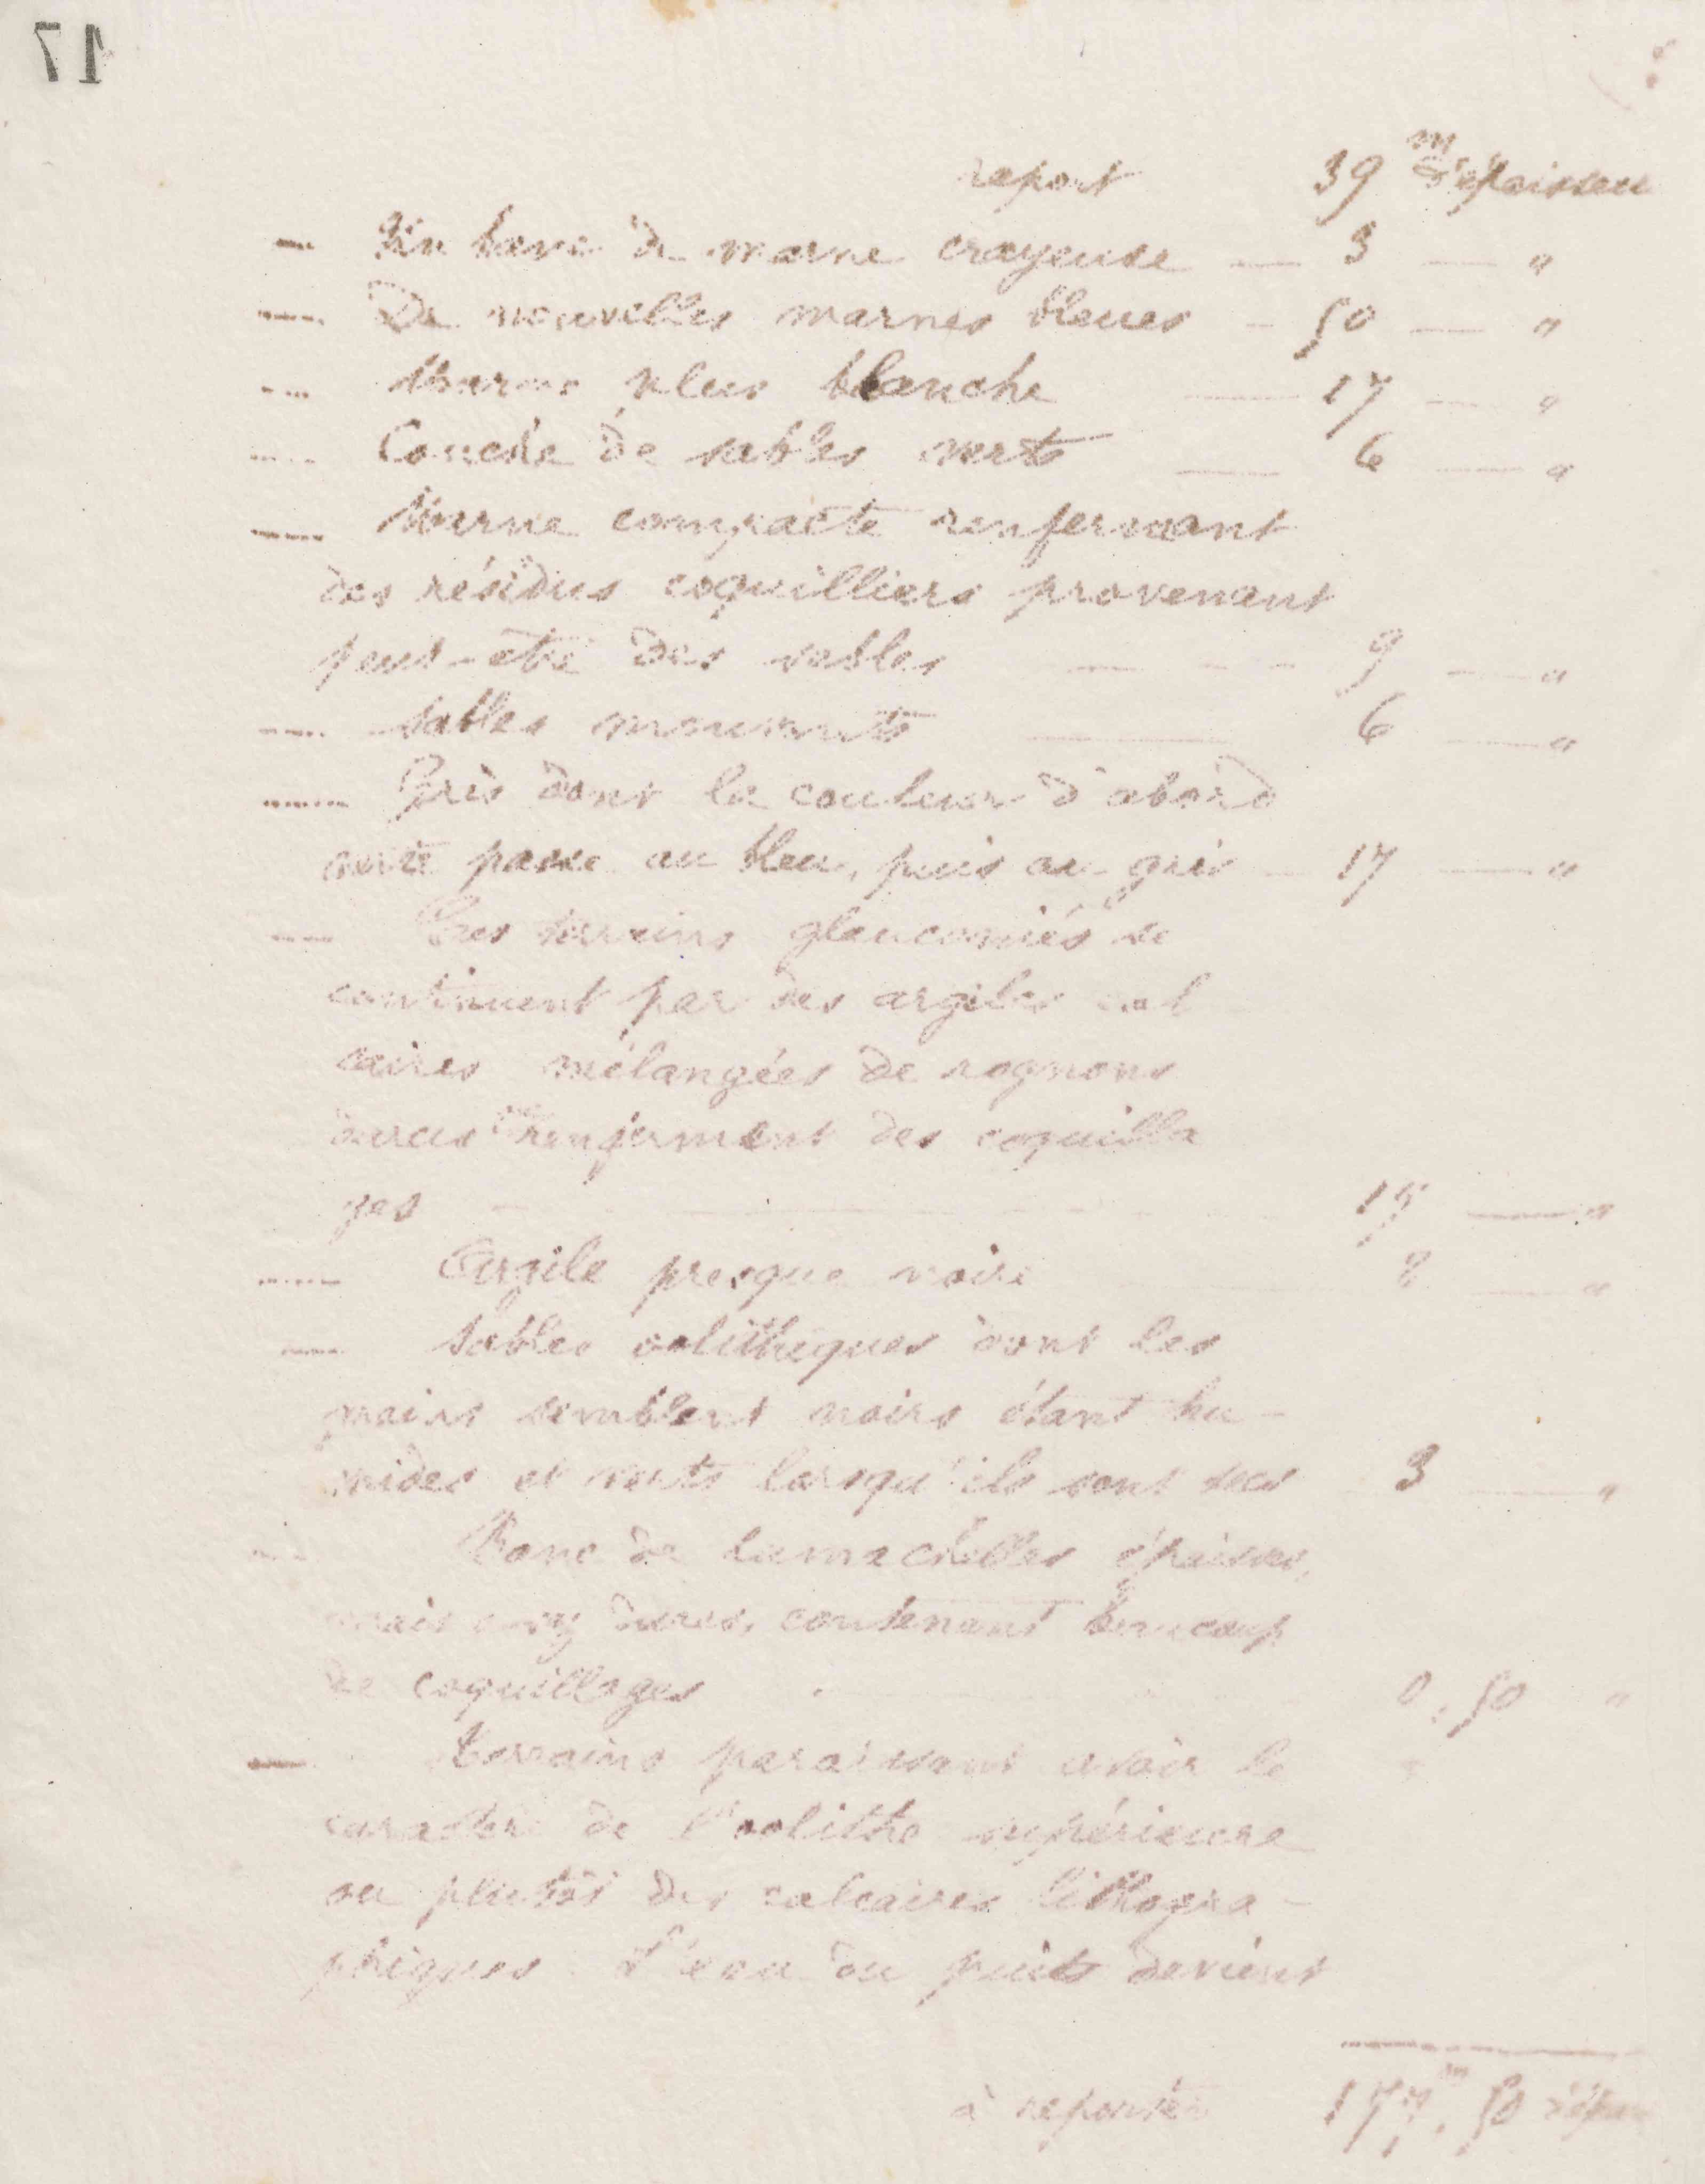 17
report 39 m d'épaisseur
— Un banc de marne crayeuse — 3 — "
— De nouvelles marnes bleues — 50 — "
— Marne plus blanche — 17 — "
— Couche de sables verts — 6 — "
— Marne compacte renfermant
des résidus coquilliers provenant
peut-être des sables — 9 — "
— Sables mouvants — 6 — "
— Grès dont la couleur d'abord
verte passe au bleu, puis au gris — 17 — "
— Ces terrains glauconiés se
continuent par des argiles cal
caires mélangées de rognons
durcis renferment des coquilla
ges 15 — "
— Argile presque noire "
— Sables oolithiques dont les
grains semblent noirs étant hu-
mides et verts lorsqu'ils sont secs 3 — "
— Banc de lumachelles épaisses,
mais dures, contenant beaucoup
de coquillages 0,50 "
— Terrains paraissant avoir le
caractère de l'oolithe supérieure
ou plutôt des calcaires lithogra-
phiques. L'eau du puits devient
à reporter 177 m, 50